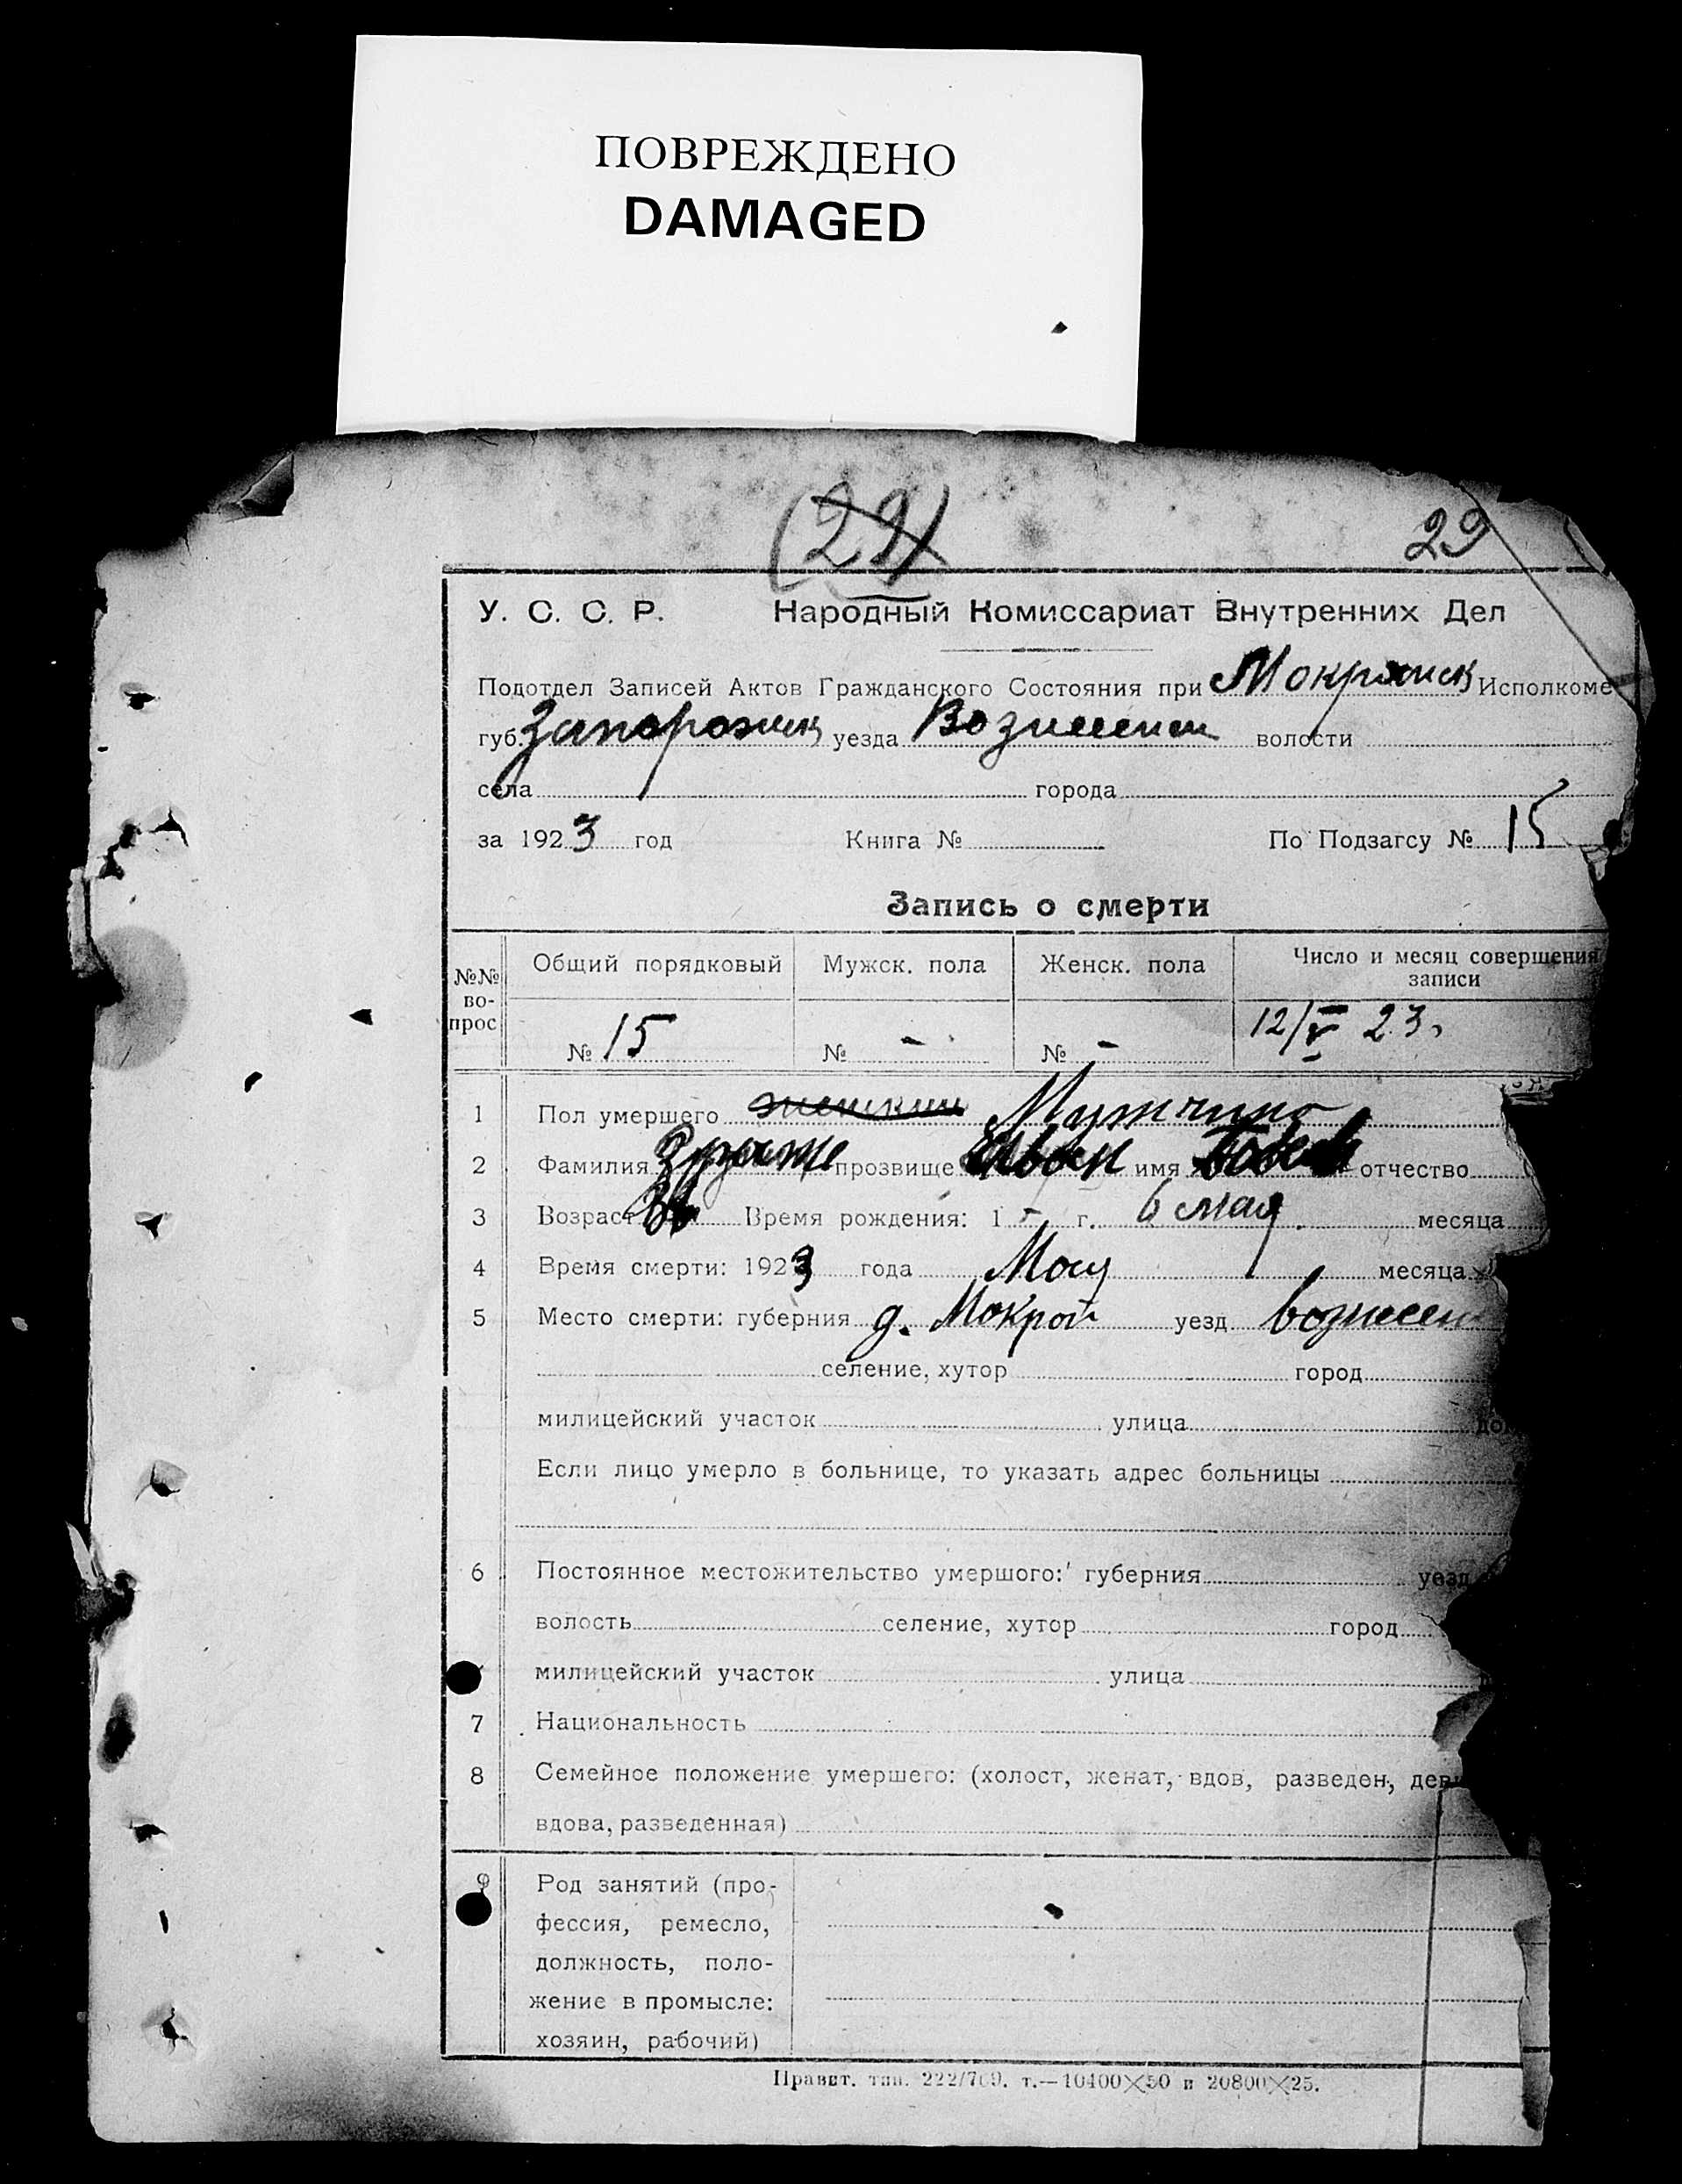 ПОВРЕЖДЕНО
DAMAGED
(29) 29
У. С. С. Р. Народный Комиссариат Внутренних Дел
Подотдел Записей Актов Гражданского Состояния при Мокрянск Исполкоме
губ. Запорожск уезда Вознесенск волости
села города
за 1923 год Книга № По Подзагсу № 15
Запись о смерти
№№ во- прос Общий порядковый Мужск. пола Женск. пола Число и месяц совершения записи
№ 15 № - № - 12/V 23
1 Пол умершего женский Мужчина
2 Фамилия прозвище имя отчество
3 Возраст Время рождения: 1 - г. 6 мая месяца
4 Время смерти: 1923 года месяца
5 Место смерти: губерния д. Мокрой уезд вознесен
селение, хутор город
милицейский участок улица до
Если лицо умерло в больнице, то указать адрес больницы
6 Постоянное местожительство умершого: губерния уезд
волость селение, хутор город
милицейский участок улица
7 Национальность
8 Семейное положение умершего: (холост, женат, вдов, разведен, дев
вдова, разведенная)
9 Род занятий (про-
фессия, ремесло,
должность, поло-
жение в промысле:
хозяин, рабочий)
Правит. тип. 222/709. т.—10400×50 и 20800×25.